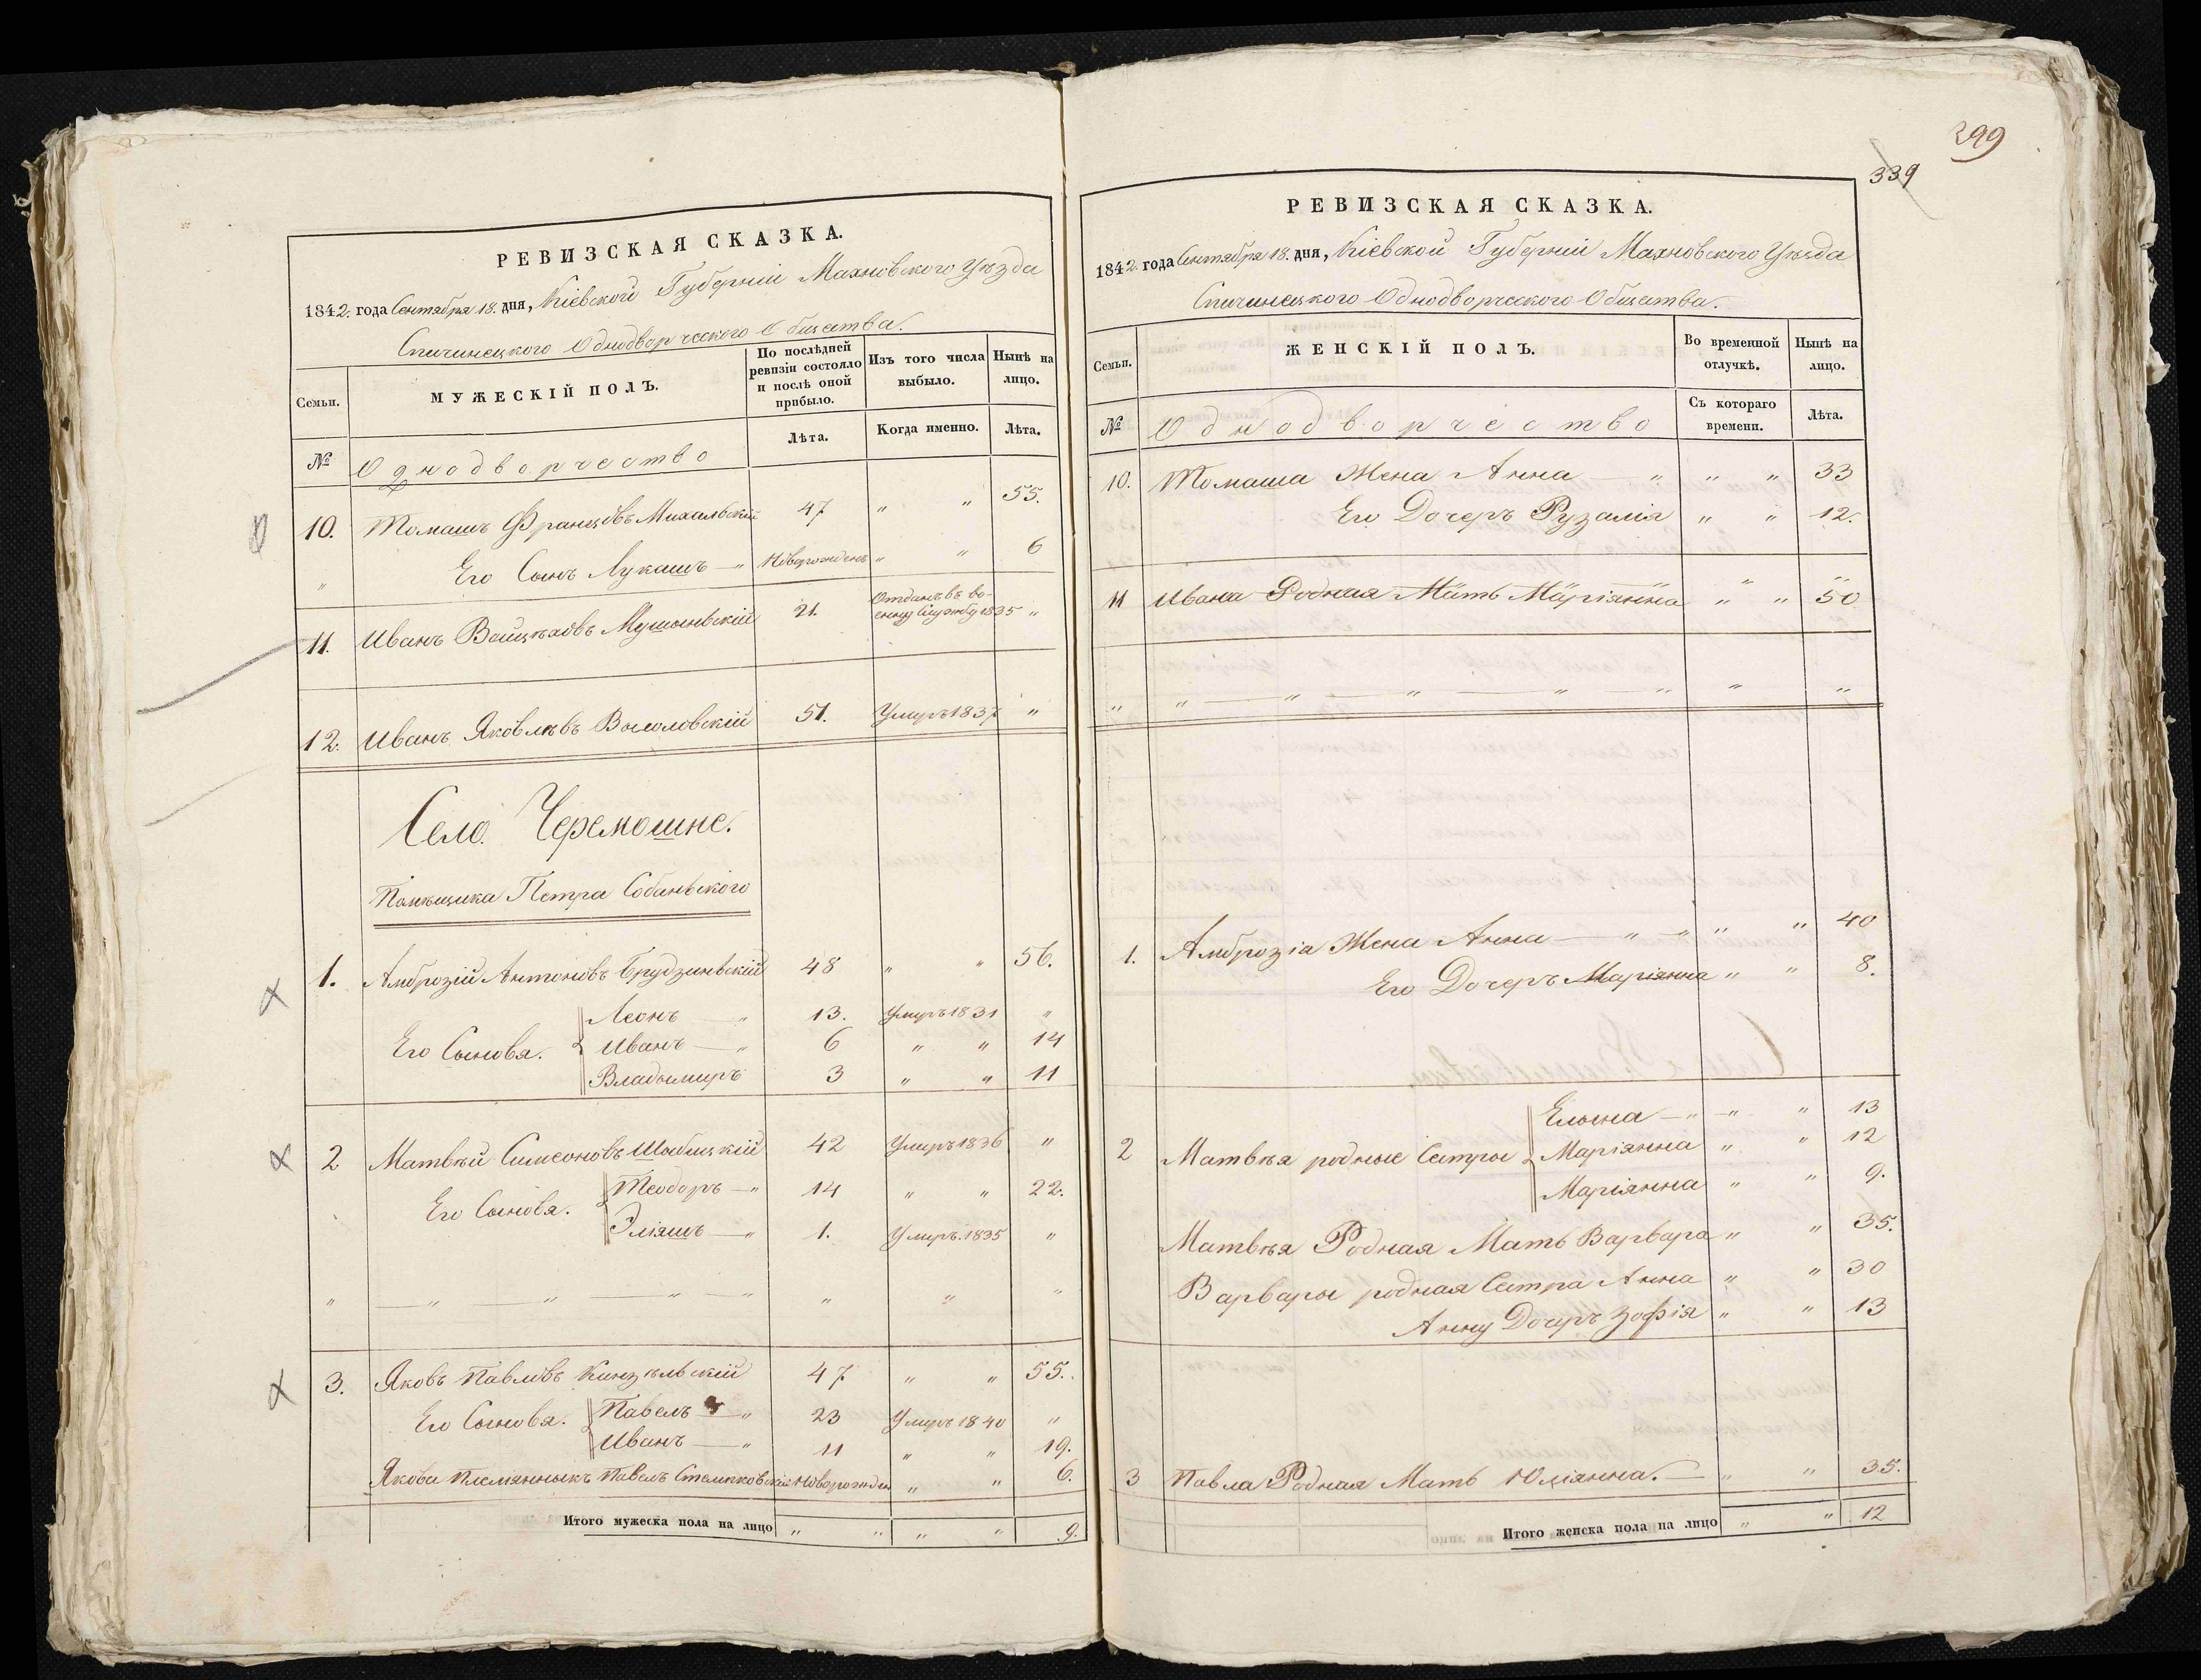 РЕВИЗСКАЯ СКАЗКА.
1842. года Сентября 18. дня, Кіевской Губерніи Махновского Уѣзда
Спичинецкого Однодворческого Общества.
Семьи.
МУЖЕСКІЙ ПОЛЪ.
По послѣдней ревизіи состояло и послѣ оной прибыло.
Изъ того числа выбыло.
Нынѣ на лицо.
№
Однодворчество
Лѣта.
Когда именно.
Лѣта.
10. Томашъ Францовъ Михальскій 47 " " 55.
" Его Сынъ Лукашъ — " Новорожденъ " " 6
11. Иванъ Войцѣховъ 21. Отданъ въ военну службу 1835 "
12. Иванъ Яковлѣвъ 51. Умиръ 1837 "
Село Черемошне.
Помѣщика Петра Собаньского
1. Амброзій Антоновъ Брудзинвскій 48 " " 56.
Его Сынова. Леонъ — " 13. Умиръ 1831 "
Иванъ — " 6 " " 14
Владымиръ 3 " " 11
2 Матвѣй Симеоновъ 42 Умиръ 1836 "
Его Сынова. Теодоръ — " 14 " " 22.
Эліяшъ — " 1. Умиръ. 1835 "
" — " — " — " — " " " "
3. Яковъ Павловъ 47 " " 55.
Его Сынова. Павелъ — " 23 Умиръ 1840 "
Иванъ — " 11 " " 19.
Якова Племянныкъ Павелъ Стемпковскій Новорожден " " 6.
Итого мужеска пола на лицо " " " " 9.
299
339
РЕВИЗСКАЯ СКАЗКА.
1842. года Сентября 18. дня, Кіевской Губерніи Махновского Уѣзда
Спичинецкого Однодворческого Общества.
Семьи.
ЖЕНСКІЙ ПОЛЪ.
Во временной отлучкѣ.
Нынѣ на лицо.
№
Однодворчество
Съ котораго времени.
Лѣта.
10. Томаша Жена Анна — " " " 33
Его Дочеръ Рузалія " " 12.
11 Ивана Родная Мать Маріянна " " 50
" " — " — " — " — " " "
1. Амброзіа Жена Анна — " — " " " 40
Его Дочеръ Маріянна " " 8.
2 Матвѣя родные Сестры Елысна — " — " " 13
Маріянна " " 12
Маріянна " " 9.
Матвѣя Родная Мать Варвара " " 35.
Варвары родная Сестра Анна " " 30
Анну Дочеръ Зофія " " 13
3 Павла Родная Мать Юліянна. — " " 35.
Итого женска пола на лицо " " 12